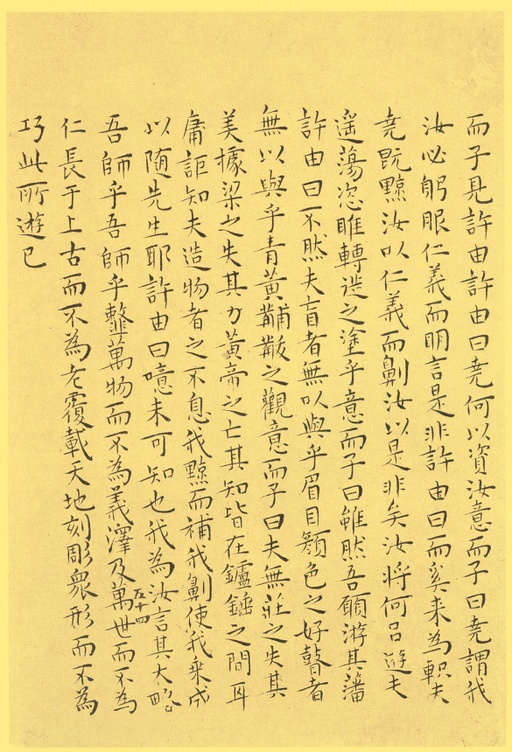 而子見許由許由曰堯何以資汝意而子曰堯謂我
汝必躬服仁義而明言是非許由曰而奚来為軹夫
堯既黥汝以仁義而劓汝以是非矣汝將何以遊夫
遥蕩恣睢轉徙之塗乎意而子曰雖然吾願游其藩
許由曰不然夫盲者無以與乎眉目顏色之好瞽者
無以與乎青黃黼黻之觀意而子曰夫無莊之失其
美據梁之失其力黃帝之亡其知皆在鑪錘之間耳
庸詎知夫造物者之不息我黥而補我劓使我乘成
以随先生耶許由曰噫未可知也我為汝言其大略
吾師乎吾師乎䪠萬物而不為義澤及萬世而不為
五十四
仁長于上古而不為老覆載天地刻彫衆形而不為
巧此所遊已